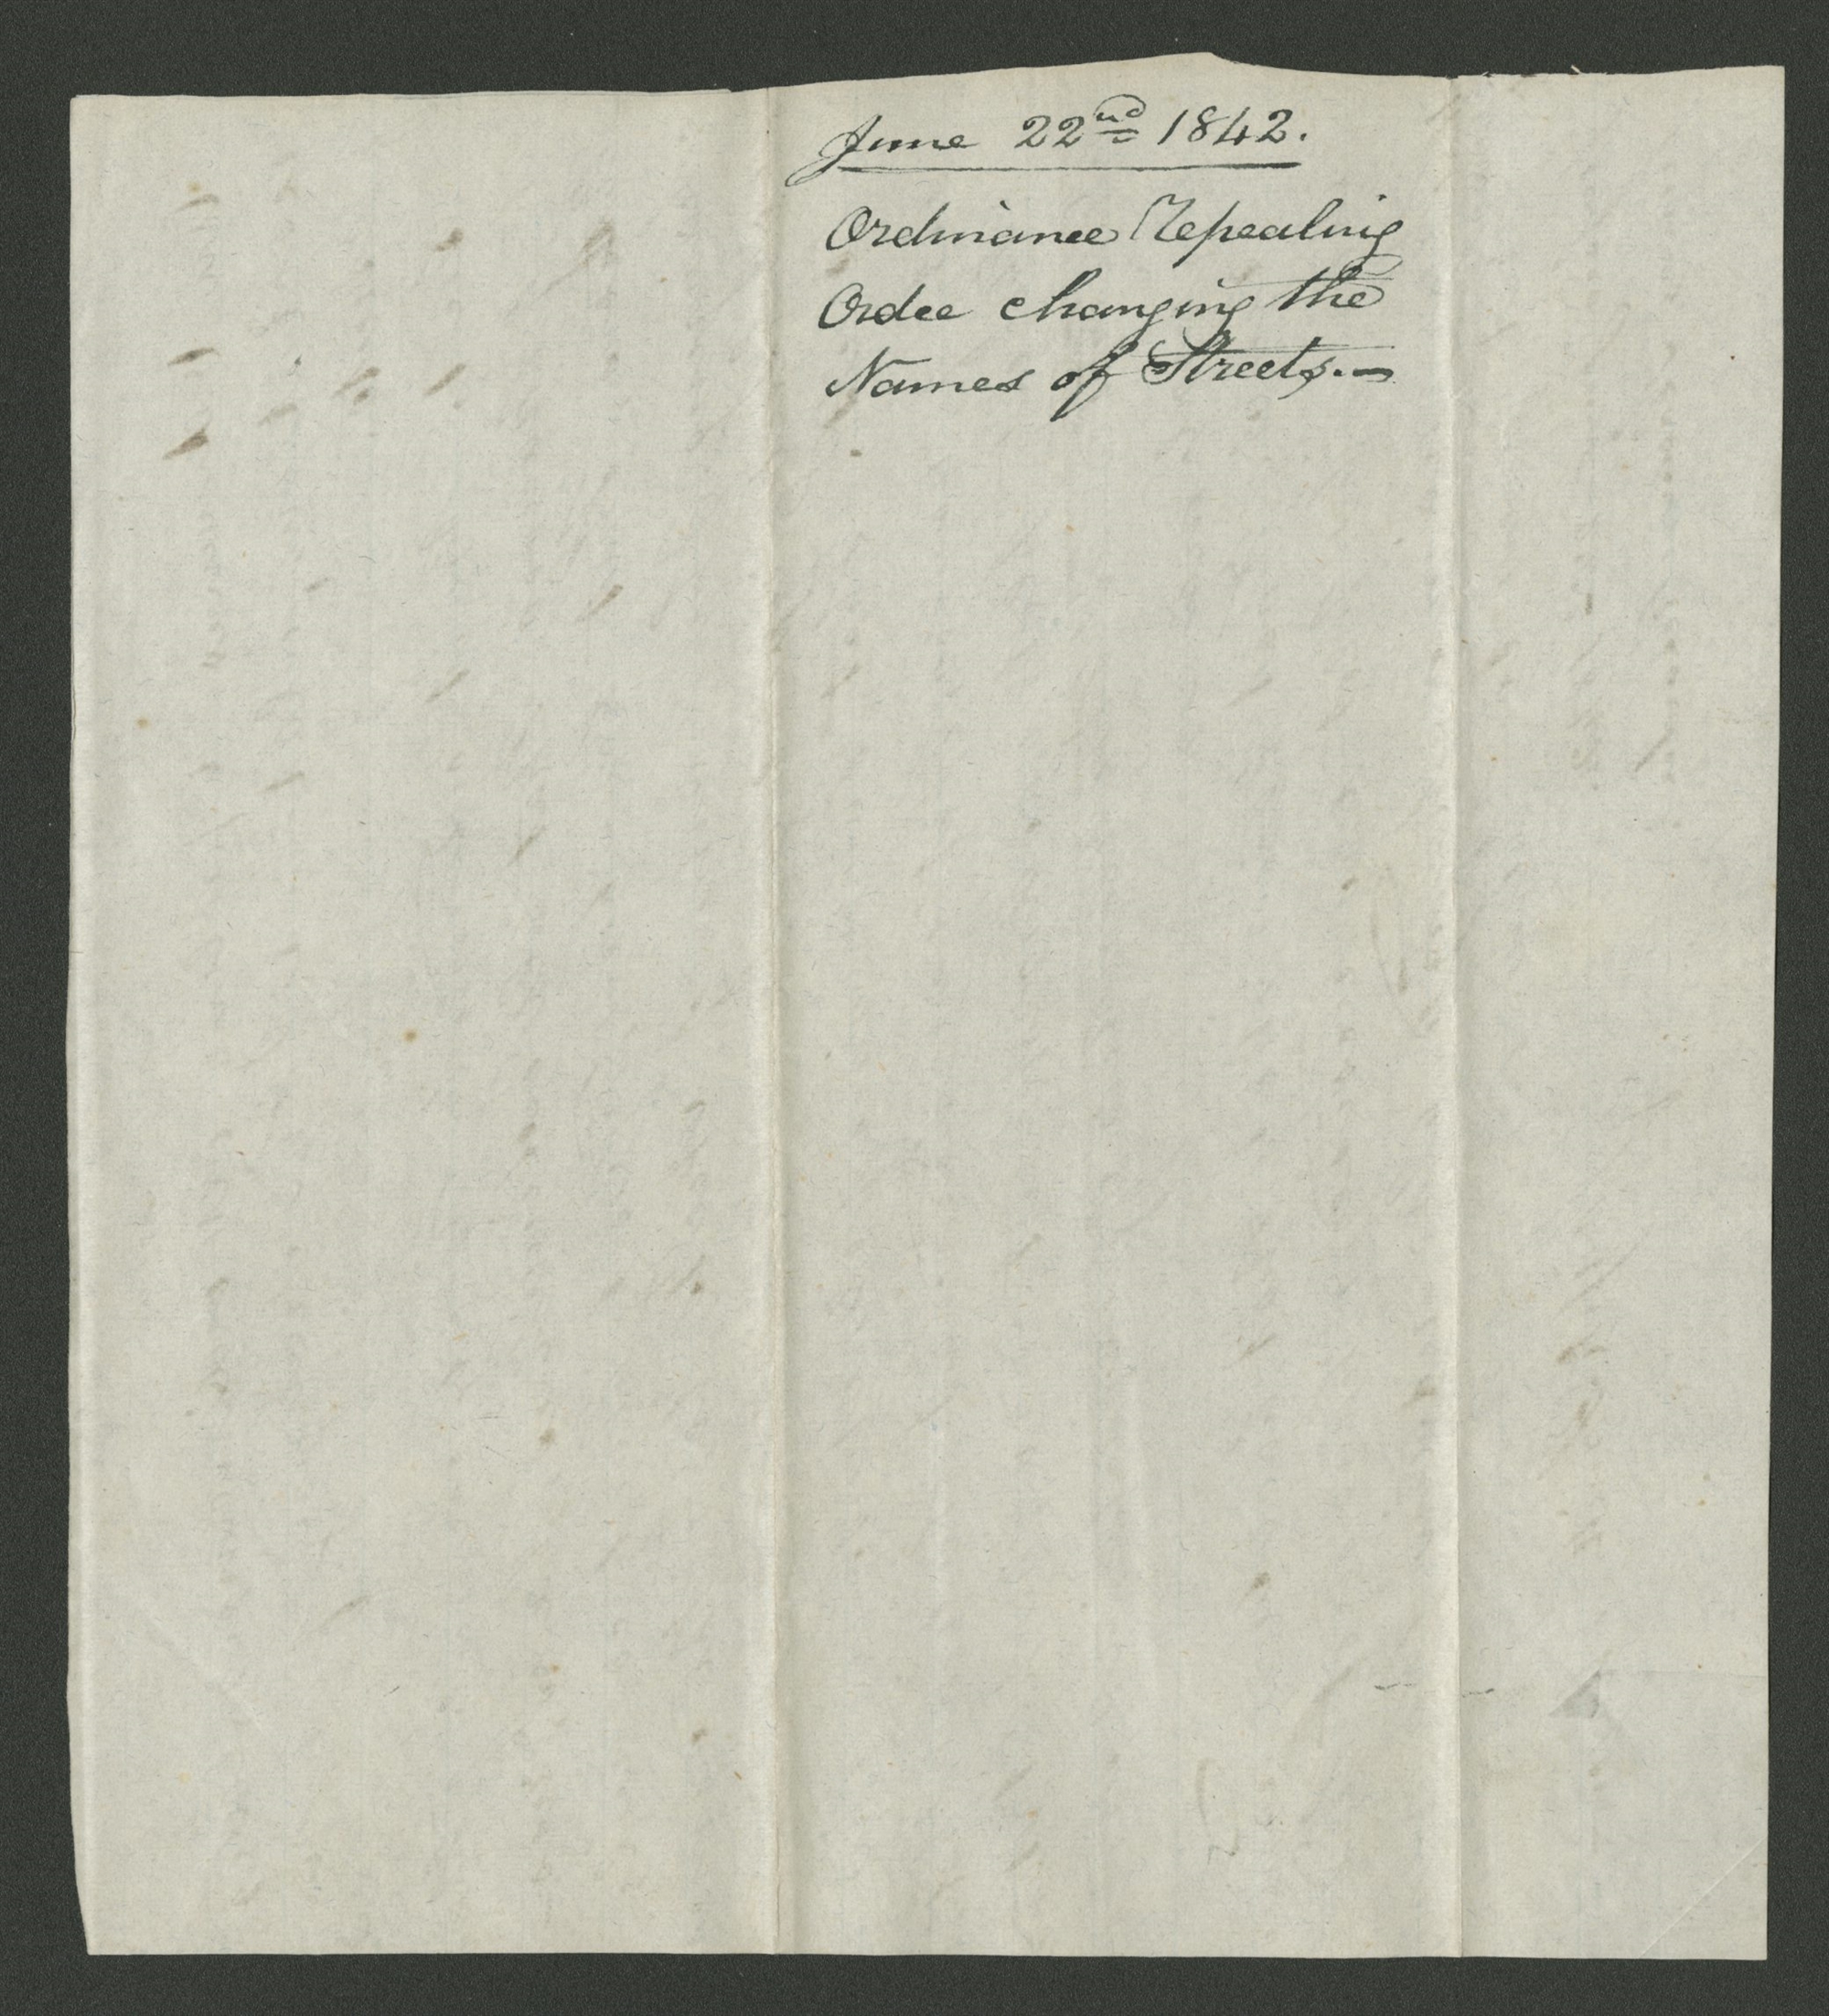 June 22nd 1842.
Ordinance Repealing
Ordce changing the
Names of Streets.—